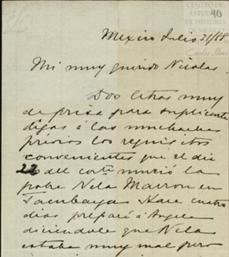 CENTRO DE
ESTUDIOS
DE HISTORIA
40
Mexico Julio 31/88
Mi muy querido Nicolas.
Dos letras muy
de prisa para suplicarte
digas á las muchachas
previos los requisitos
convenientes que el dia
22 del corte murió la
pobre Nela Marron en
Tacubaya. Hace cuatro
dias preparé á Angela
diciendole que Nela
estaba muy mal pero